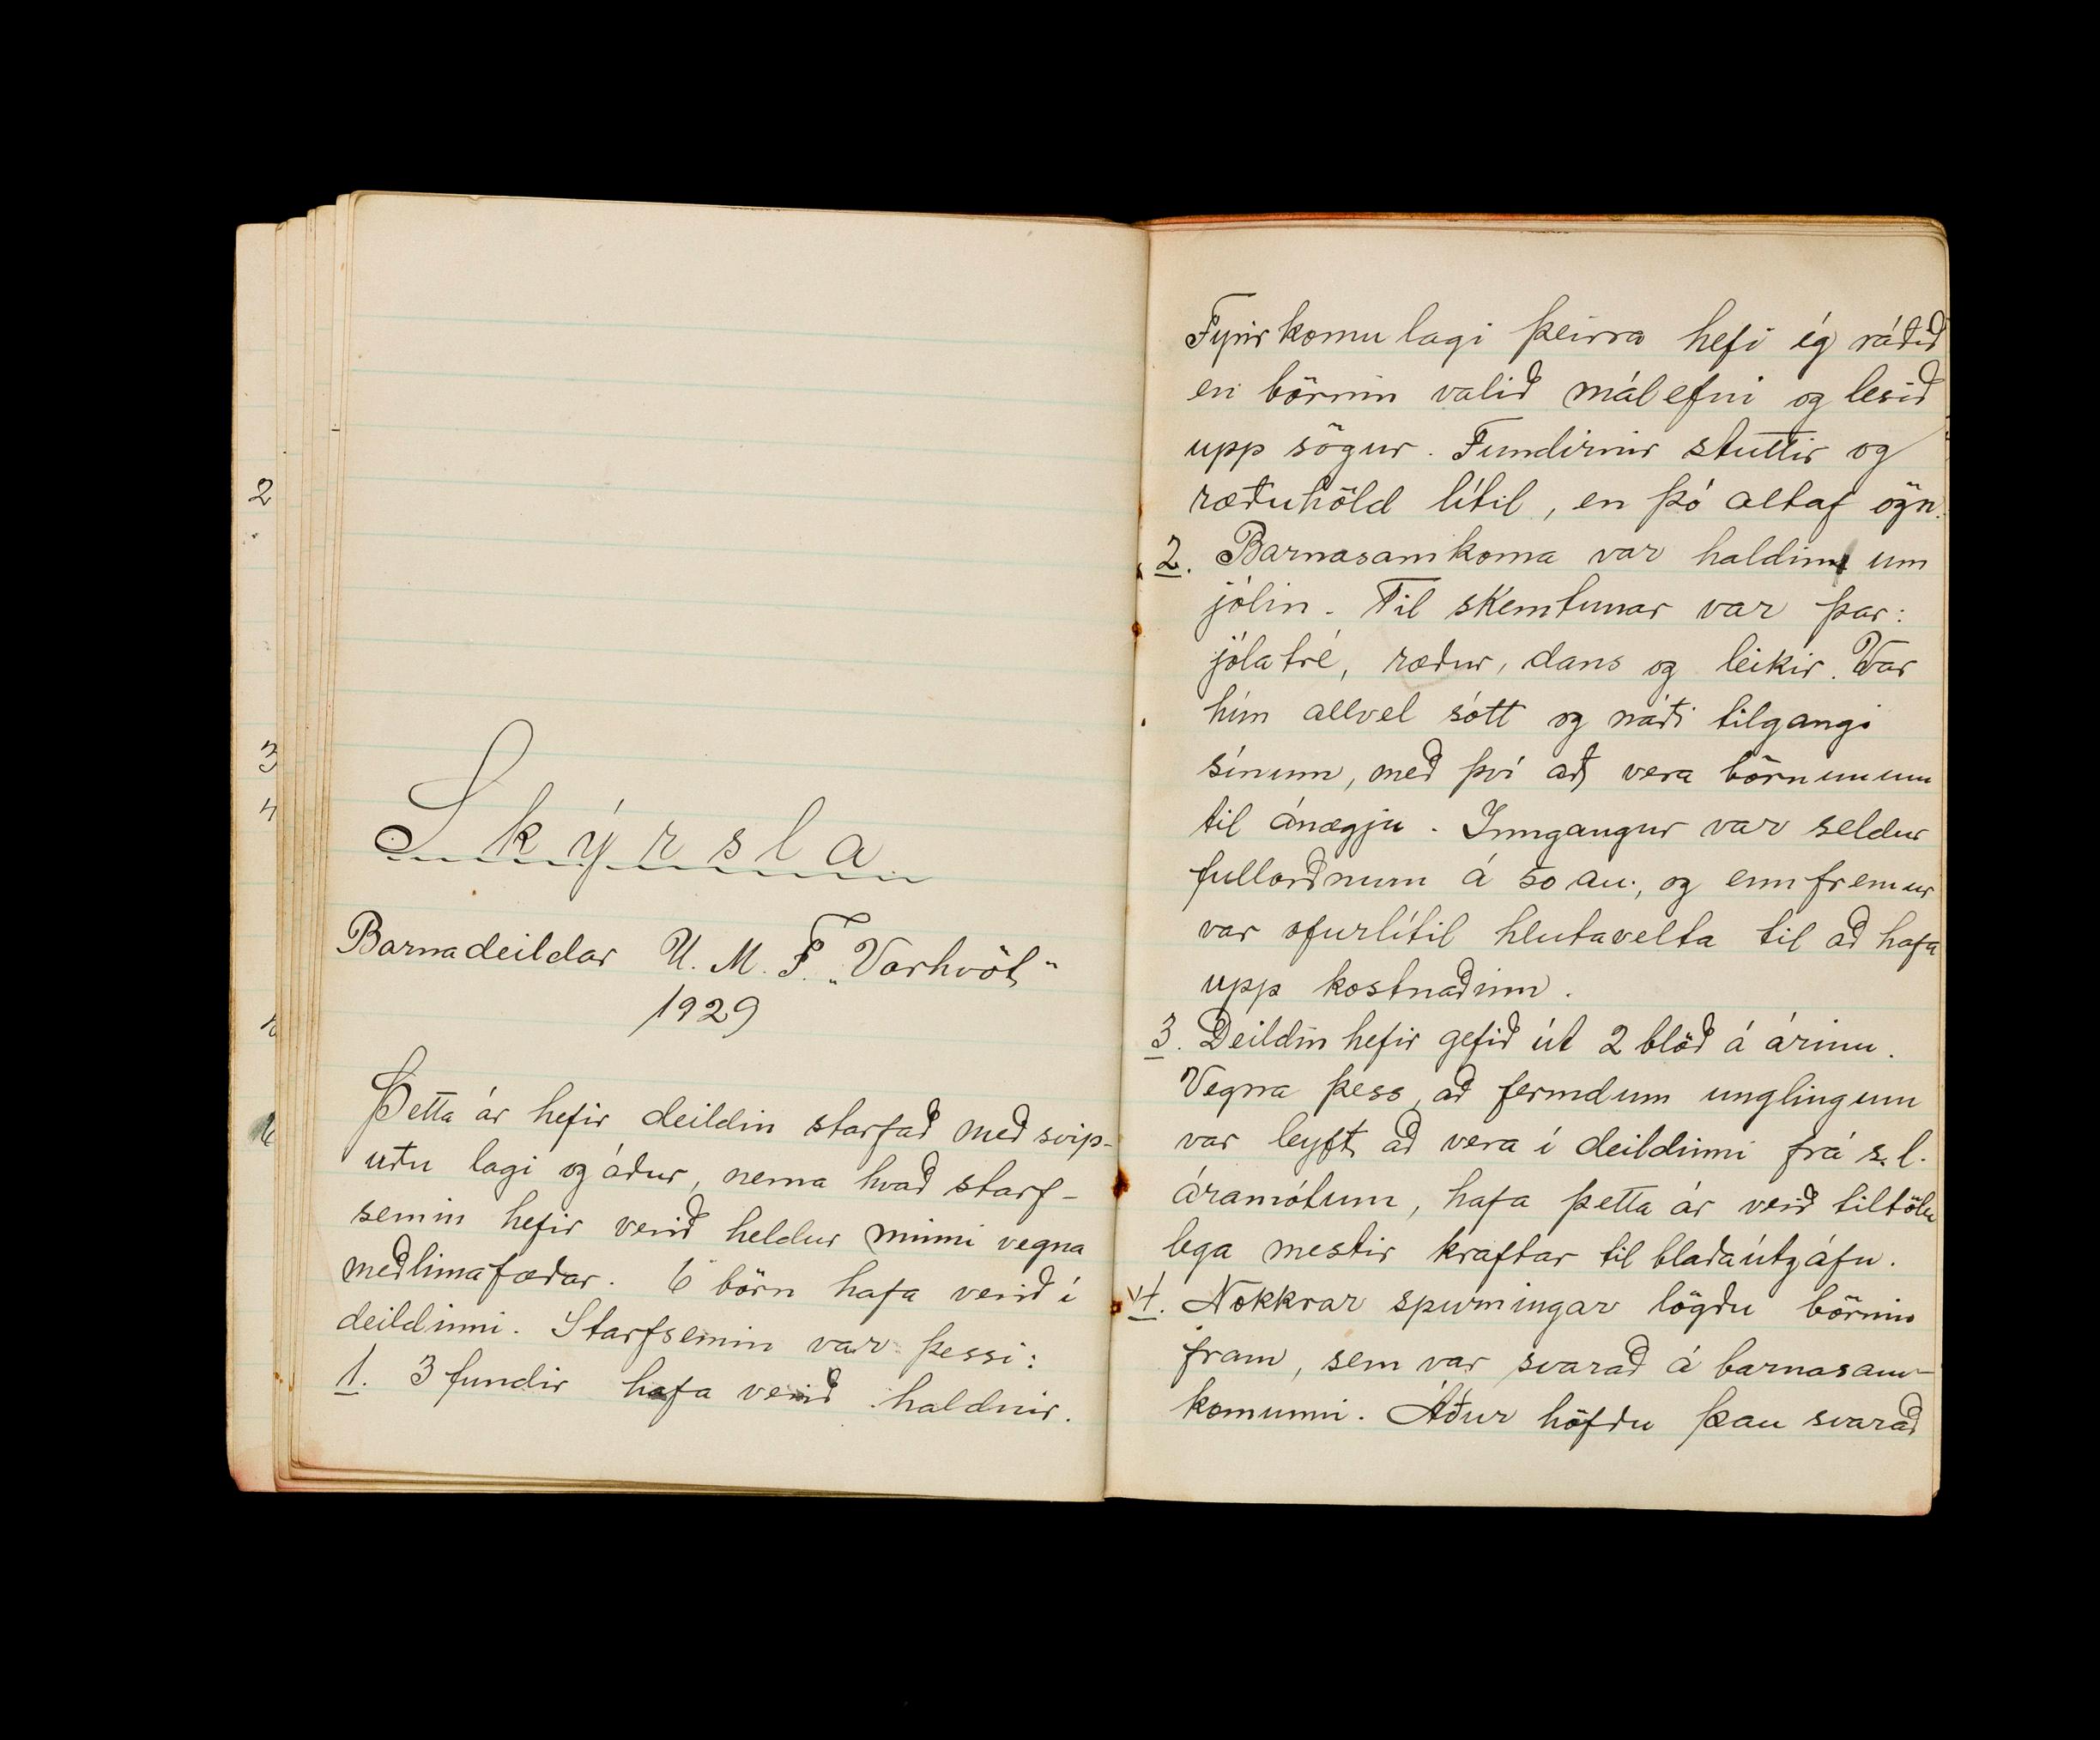 2
3
4
Skýrsla
Barnadeildar U. M. F. „Vorhvöt"
1929
Þetta ár hefir deildin starfað með svip-
uðu lagi og áður, nema hvað starf-
semin hefir verið heldur minni vegna
meðlimafæðar. 6 börn hafa verið í
deildinni. Starfsemin var þessi:
1. 3 fundir hafa verið haldnir.
Fyrirkomulagi þeirra hefi ég ráðið
en börnin valið málefni og lesið
upp sögur. Fundirnir stuttir og
ræðuhöld lítil, en þó altaf ögn.
2. Barnasamkoma var haldin um
jólin. Til skemtunar var þar:
jólatré, ræður, dans og leikir. Var
hún allvel sótt og náði tilgangi
sínum, með því að vera börnunum
til ánægju. Inngangur var seldur
fullorðnum á 50 au., og ennfremur
var ofurlítil hlutavelta til að hafa
upp kostnaðinn.
3. Deildin hefir gefið út 2 blöð á árinu.
Vegna þess, að fermdum unglingum
var leyft að vera í deildinni frá s.l.
áramótum, hafa þetta ár verið tiltölu
lega mestir kraftar til blaðaútgáfu.
4. Nokkrar spurningar lögðu börnin
fram, sem var svarað á barnasam-
komunni. Áður höfðu þau svarað